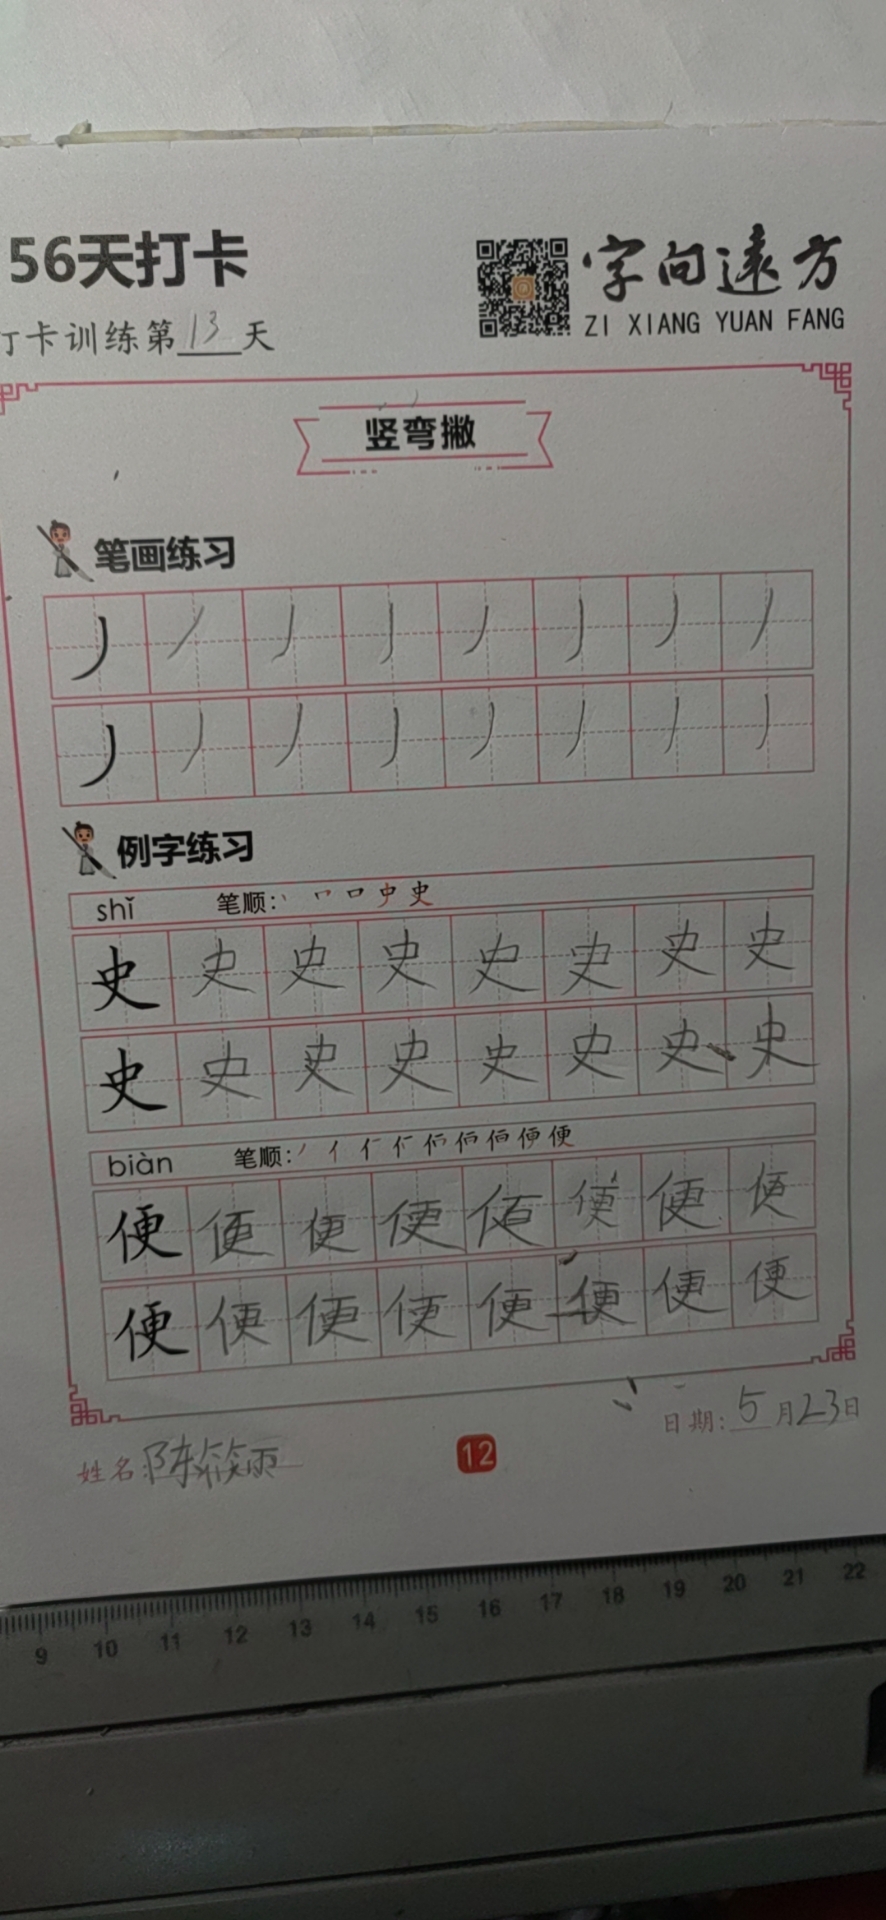 56天打卡
字向远方
ZI XIANG YUAN FANG
打卡训练第13天
竖弯撇
笔画练习
丿丿丿丿丿丿丿丿
丿丿丿丿丿丿丿丿
例字练习
shǐ 笔顺: 史
史史史史史史史史
史史史史史史史史
biàn 笔顺: 便
便便便便便便便便
便便便便便便便便
姓名:陈筱雨
12
日期:5月23日
9 10 11 12 13 14 15 16 17 18 19 20 21 22